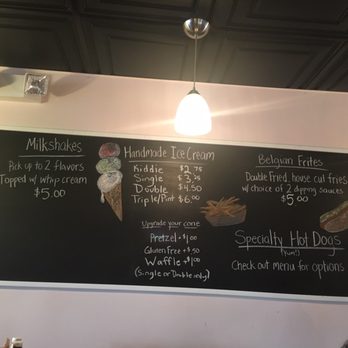 Milkshakes
Pick up to 2 flavors
Topped w/ whip cream
$5.00
Handmade Ice Cream
Kiddie $2.75
Single $3.75
Double $4.50
Triple/Pint $6.00
Upgrade your cone
Pretzel +$1.00
Gluten Free +$.50
Waffle +$1.00
(Single or Double only)
Belgian Frites
Double Fried, house cut fries
w/ choice of 2 dipping sauces
$5.00
Specialty Hot Dogs
(Yum!)
Check out menu for options